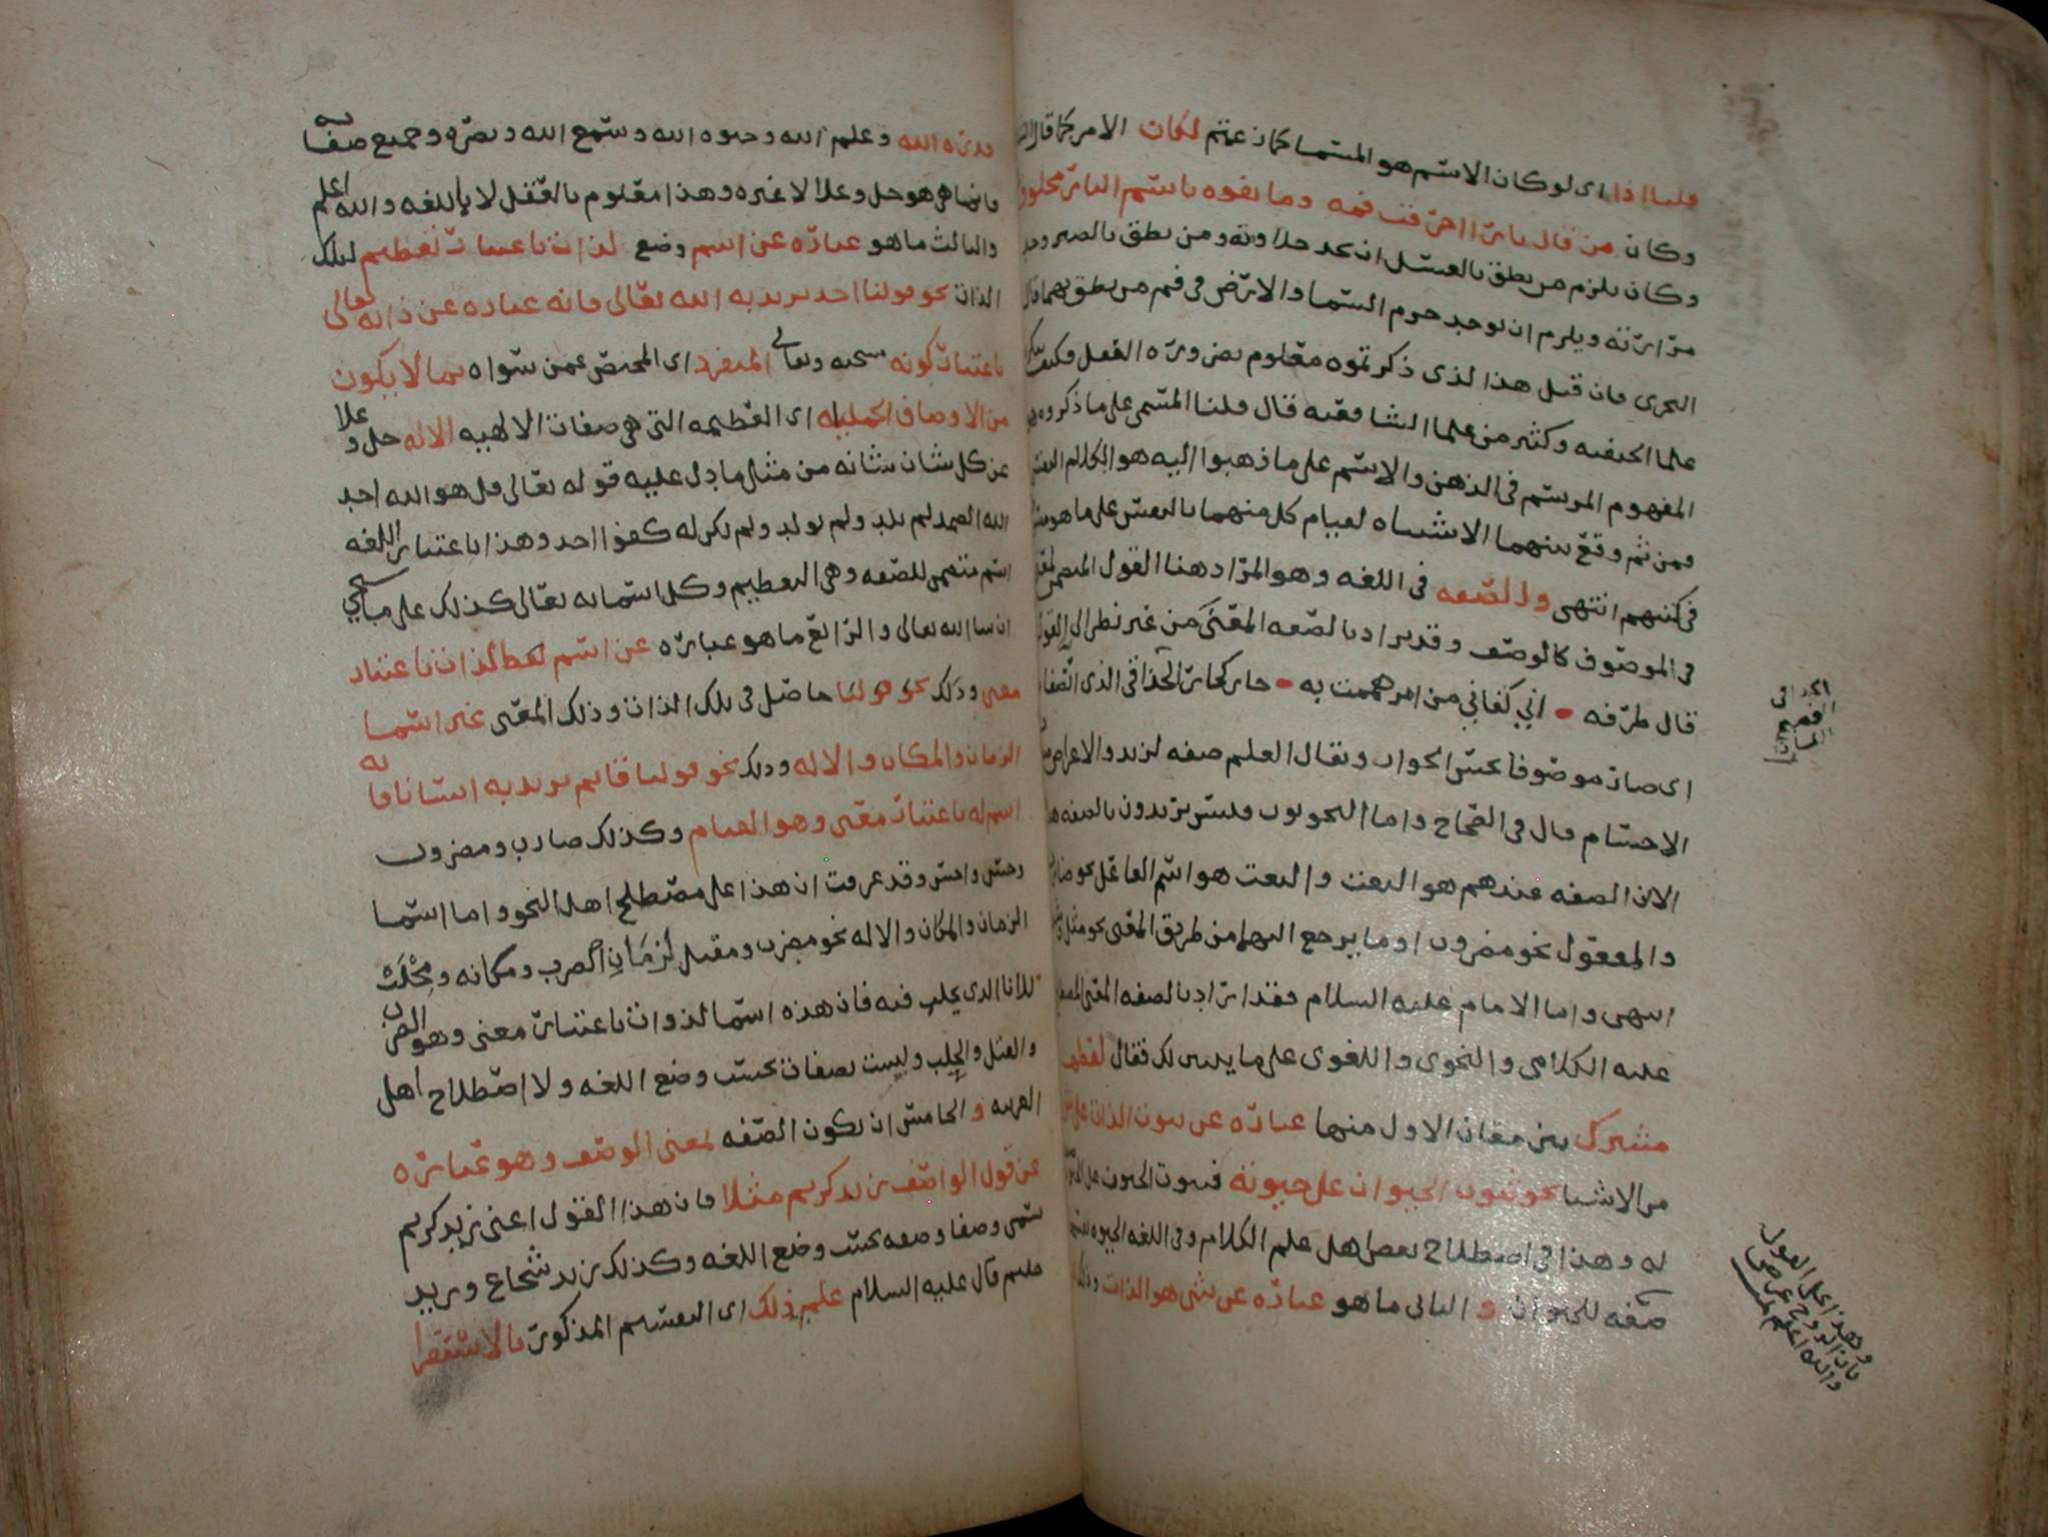 قلنا اذا اى لو كان الاسم هو المسما كما زعمتم لكان الامر كما قال
وكان من قال نارا احترقت فمه وما تفوه باسم النار مخلوق
وكان يلزم من نطق بالعسل ان يجد حلاوته ومن نطق بالصبر وجد
مرارته ويلزم ان يوجد جرم السما والارض فى فم من نطق بهما قال
النجرى فان قيل هذا الذى ذكرتموه معلوم بضرورة العقل وكيف
علما الحنفيه وكثير من علما الشافعيه قال قلنا المسمى على ما ذكروه هو
المفهوم المرتسم فى الذهن والاسم على ما ذهبوا اليه هو الكلام النفسى
ومن ثم وقع بينهما الاشتباه لقيام كل منهما بالنفس على ما هو
فى كتبهم انتهى والصفه فى اللغه وهو المراد هنا القول المتضمن لمعنى
فى الموصوف كالوصف وقد يراد بالصفه المعنى من غير نظر الى القول
قال طرفه • انى كفانى من امر هممت به • جار كجار الحذاقى الذى اتصفا
اى صار موصوفا بحسن الجوار ويقال العلم صفه لزيد والاعراض
الاجسام قال فى الصحاح واما النحويون فليس يريدون بالصفه هذا
لان الصفه عندهم هو النعت والنعت هو اسم الفاعل نحو ضارب
والمفعول نحو مضروب او ما يرجع اليهما من طريق المعنى نحو مثل
انتهى واما الامام عليه السلام فقد اراد بالصفه المعنى
عليه الكلامى والنحوى واللغوى على ما يبين لك فقال لفظها
مشترك بين معان الاول منها عبارة عن ثبوت الذات على
من الاشيا نحو ثبوت الحيوان على حيوته فثبوت الحيوان على
له وهذا فى اصطلاح بعض اهل علم الكلام وفى اللغه الحيوه
صفه للحيوان والثانى ما هو عبارة عن شى هو الذات وذلك
الحذاقى
الفصيح
اللسان
وهذا على القول
بان الروح عرض
والله اعلم
قدرة الله وعلم الله وحيوة الله وسمع الله وبصره وجميع صفاته
فانما هى هو جل وعلا لا غيره وهذا معلوم بالعقل لا باللغه والله اعلم
والثالث ما هو عبارة عن اسم وضع لذات باعتبار تعظيم لتلك
الذات نحو قولنا احد نريد به الله تعالى فانه عباره عن ذاته تعالى
باعتبار كونه سبحنه وتعالى المنفرد اى المختص عمن سواه بما لا يكون
من الاوصاف الجليله اى العظيمه التى هى صفات الالهيه الا له جل وعلا
عن كل شان شانه من مثل ما دل عليه قوله تعالى قل هو الله احد
الله الصمد لم يلد ولم يولد ولم يكن له كفوا احد وهذا باعتبار اللغه
اسم متضمن للصفه وهى التعظيم وكل اسمائه تعالى كذلك على ما سيجي
ان شا الله تعالى والرابع ما هو عبارة عن اسم لفظ لذات باعتبار
معنى وذلك نحو قولنا حاصل فى تلك الذات وذلك المعنى غير اسما
الزمان والمكان والاله وذلك نحو قولنا قايم نريد به انسانا فانه
اسم له باعتبار معنى وهو القيام وكذلك ضارب ومضروب
وحسن واحسن وقد عرفت ان هذا على مصطلح اهل النحو واما اسما
الزمان والمكان والاله نحو مضرب ومقتل لزمان الضرب ومكانه ومحلب
للانا الذى يحلب فيه فان هذه اسما لذوات باعتبار معنى وهو الضرب
والقتل والحلب وليست بصفات بحسب وضع اللغه ولا اصطلاح اهل
العربيه والخامس ان يكون الصفه لمعنى الوصف وهو عبارة
عن قول الواصف زيد كريم مثلا فان هذا القول اعنى زيد كريم
يسمى وصفا وصفه بحسب وضع اللغه وكذلك زيد شجاع وزيد
حليم قال عليه السلام علم ذلك اى التقسيم المذكور بالاستقرا